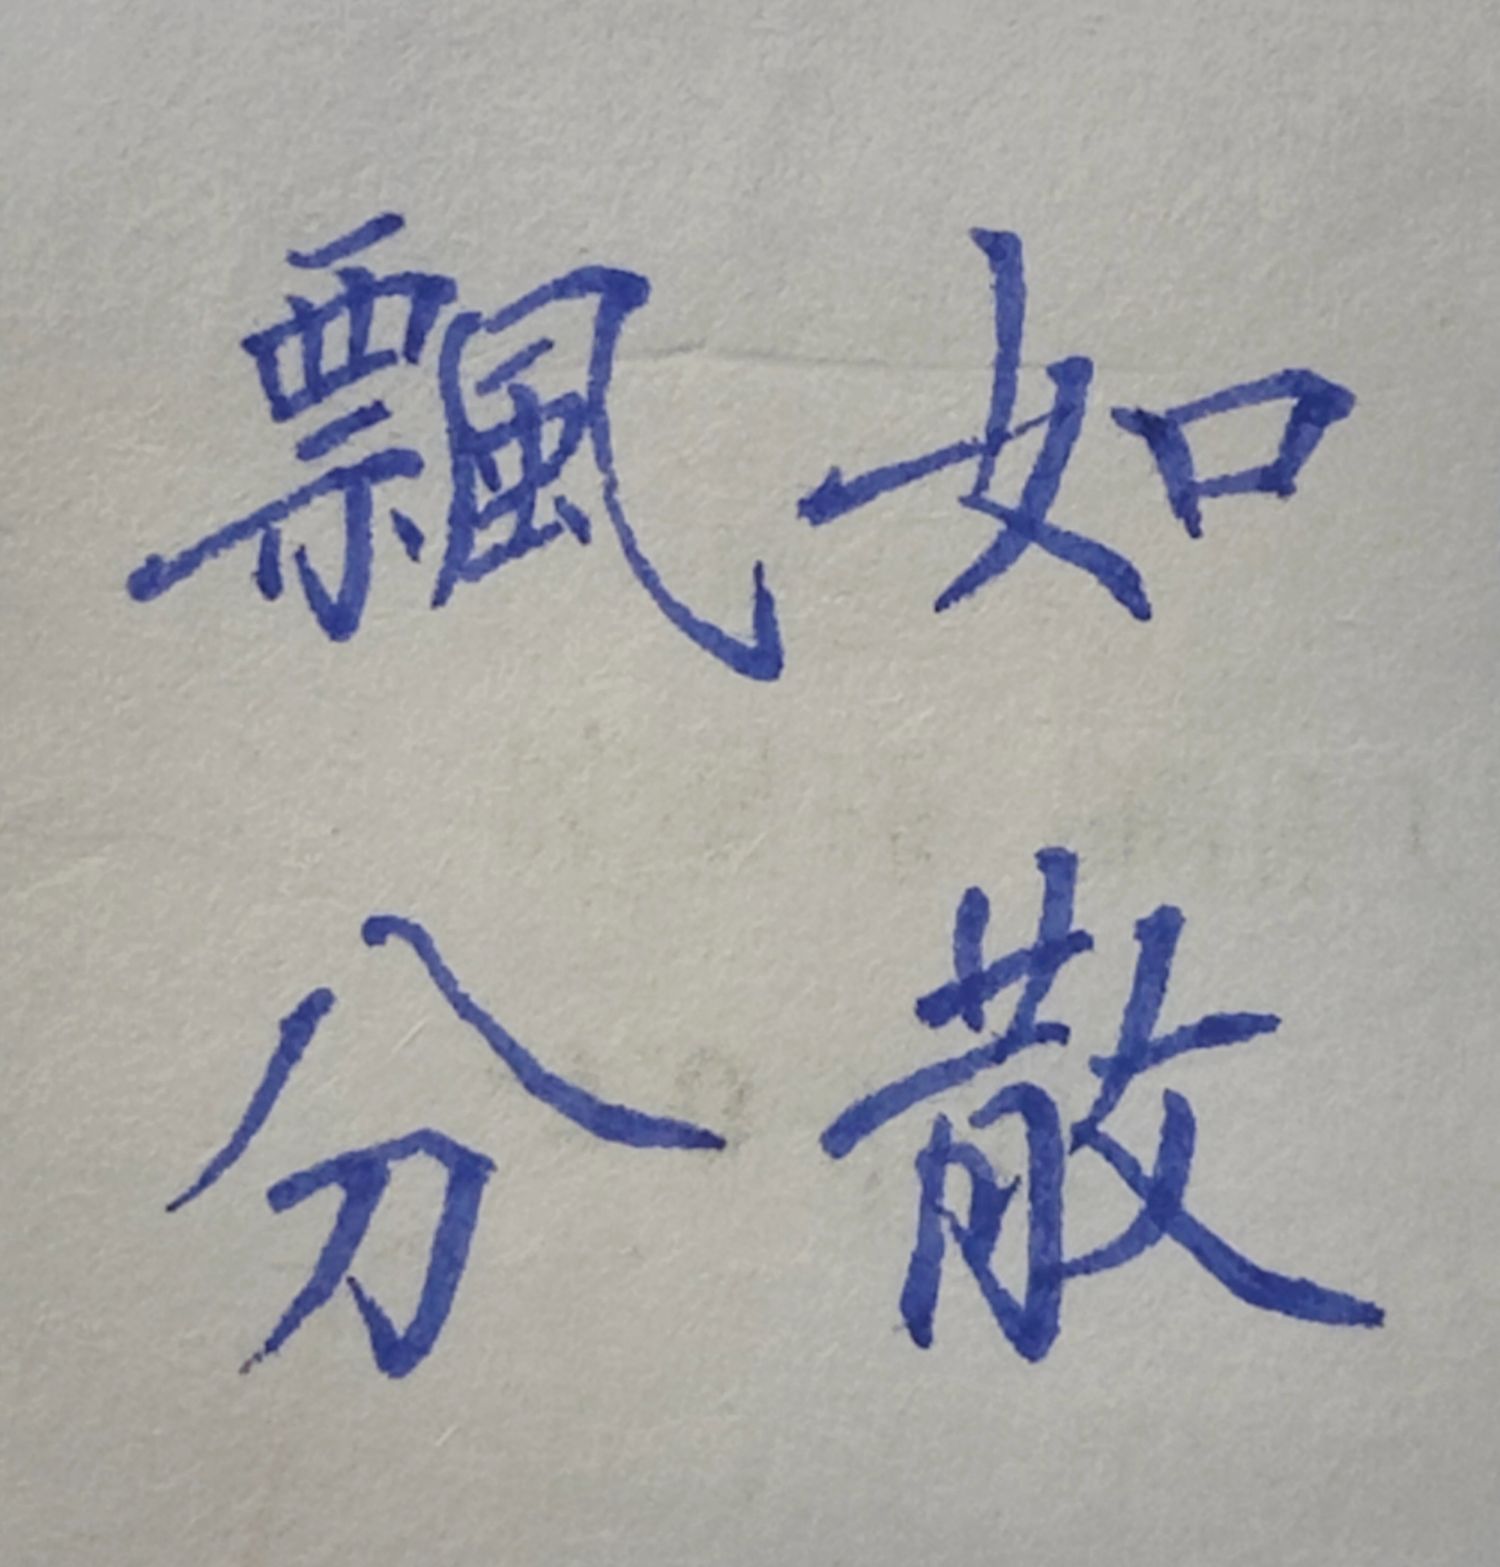 飄如
分散